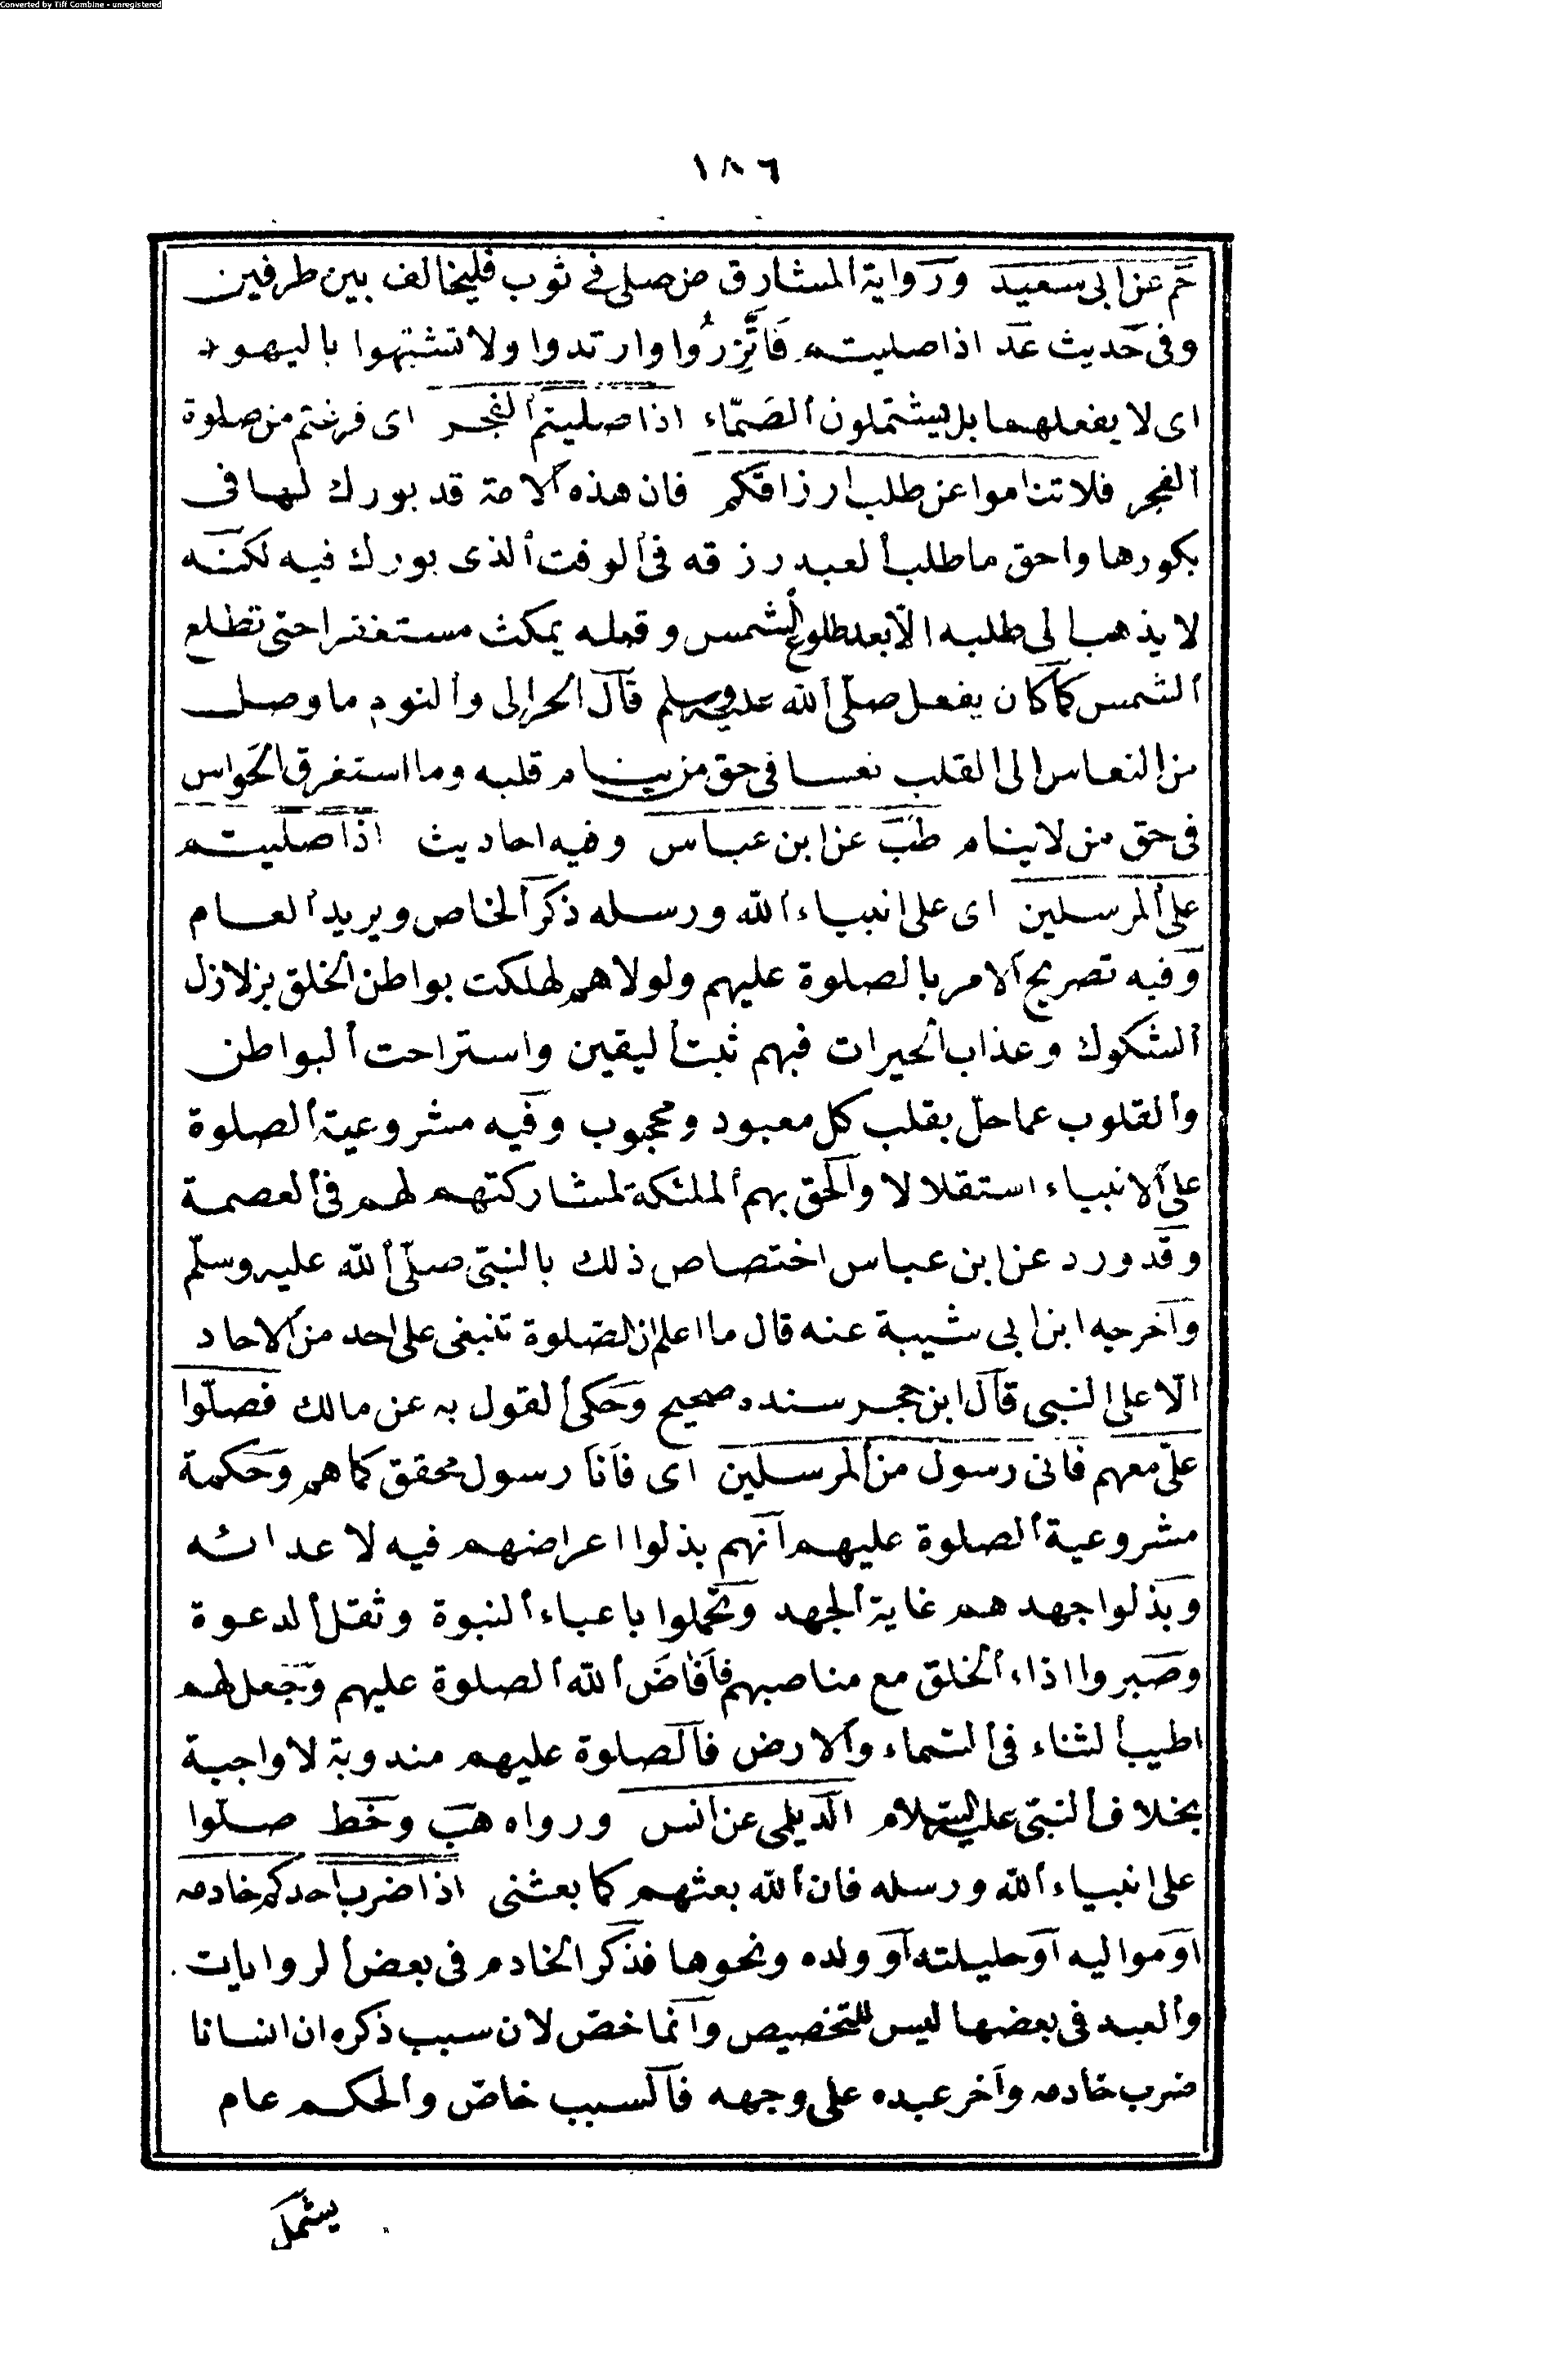 Converted by Tiff Combine - unregistered
١٨٦
حم عن ابى سعيد ورواية المشارق من صلى فى ثوب فليخالف بين طرفين
وفى حديث عد اذا صليتم فَاتَّزِرُوا وارتدوا ولا تشتبهوا باليهود
اى لا يفعلهما بل يشتملون الصَمّاء اذا صليتم الفجر اى فرغتم من صلوة
الفجر فلا تناموا عن طلب ارزاقكم فان هذه الامة قد بورك لها فى
بكورها واحق ما طلب العبد رزقه فى الوقت الذى بورك فيه لكنه
لا يذهب الى طلبه الّا بعد طلوع الشمس وقبله يمكث مستغفرا حتى تطلع
الشمس كما كان يفعل صلّى الله عليه وسلم قال الحرالى والنوم ما وصل
من النعاس الى القلب نعسا فى حق من ينام قلبه وما استغرق الحواس
فى حق من لا ينام طب عن ابن عباس وفيه احاديث اذا صليتم
على المرسلين اى على انبياء الله ورسله ذكر الخاص ويريد العام
وفيه تصريح الامر بالصلوة عليهم ولولاهم لهلكت بواطن الخلق بزلازل
الشكوك وعذاب الحيرات فبهم ثبت اليقين واستراحت البواطن
والقلوب عما حلّ بقلب كل معبود ومحجوب وفيه مشروعية الصلوة
على الانبياء استقلالا والحق بهم الملئكة لمشاركتهم لهم فى العصمة
وقد ورد عن ابن عباس اختصاص ذلك بالنبىّ صلّى الله عليه وسلّم
واخرجه ابن ابى شيبة عنه قال ما اعلم ان الصّلوة تنبغى على احد من الاحاد
الّا على النبى قال ابن حجر سنده صحيح وحكى القول به عن مالك فصلّوا
علىّ معهم فانى رسول من المرسلين اى فانا رسول محقق كما هم وحكمة
مشروعية الصلوة عليهم انهم بذلوا اعراضهم فيه لاعدائه
وبذلوا جهدهم غاية الجهد وتحملوا باعباء النبوة وثقل الدعوة
وصبروا اذاء الخلق مع مناصبهم فَاَفَاضَ الله الصلوة عليهم وجعل لهم
اطيب الثناء فى السّماء والارض فالصلوة عليهم مندوبة لا واجبة
بخلاف النبىّ عليه السّلام الديلمى عن انس ورواه هب وخط صلّوا
على انبياء الله ورسله فان الله بعثهم كما بعثنى اذا ضرب احدكم خادمه
او مواليه او حليلته او ولده ونحوها فذكر الخادم فى بعض الروايات
والعبد فى بعضها ليس للتخصيص وانما خصّ لان سبب ذكره ان انسانا
ضرب خادمه واخر عبده على وجهه فالسبب خاصّ والحكم عام
يشمل